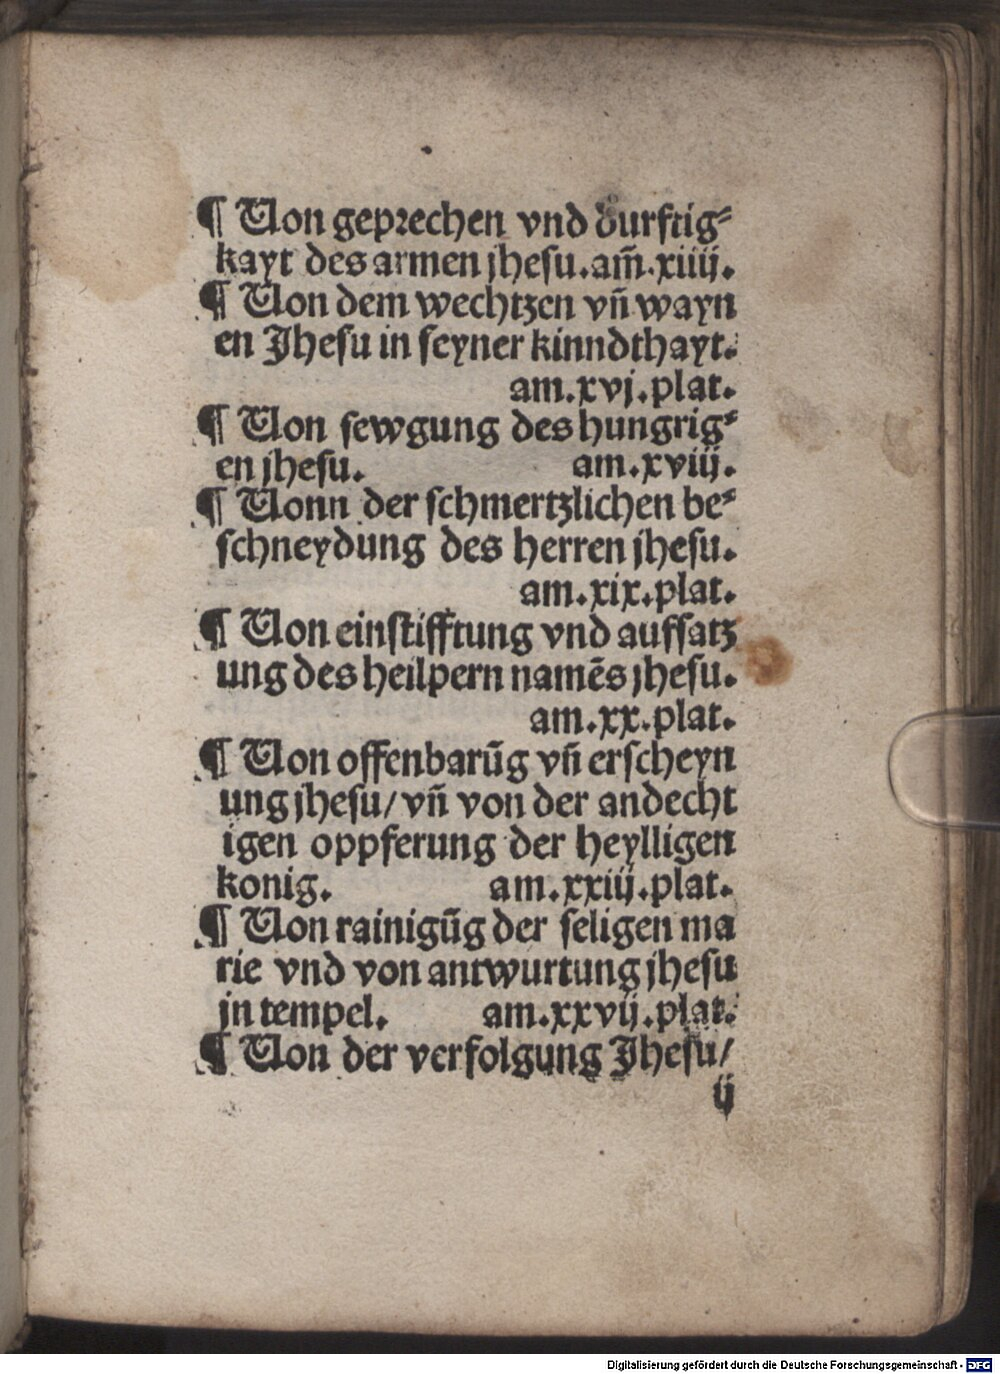 ¶ Von geprechen vnd durftig⸗
kayt des armen jhesu.am̄.xiiij.
¶ Von dem wechtzen vn̄ wayn
en Jhesu in seyner kinndthayt.
am.xvj.plat.
¶ Von sewgung des hungrig⸗
en jhesu. am.xviij.
¶ Vonn der schmertzlichen be⸗
schneydung des herren jhesu.
am.xix.plat.
¶ Von einstifftung vnd auffsatz
ung des heilpern namēs jhesu.
am.xx.plat.
¶ Von offenbarūg vn̄ erscheyn
ung jhesu/vn̄ von der andecht
igen oppferung der heylligen
konig. am.xxiij.plat.
¶ Von rainigūg der seligen ma
rie vnd von antwurtung jhesu
jn tempel. am.xxvij.plat.
¶ Von der verfolgung Jhesu/
ij
Digitalisierung gefördert durch die Deutsche Forschungsgemeinschaft - DFG